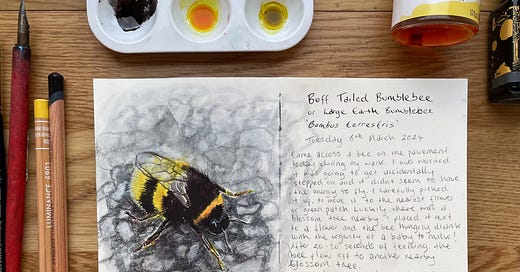 Buff Tailed Bumblebee
or Large Earth Bumblebee
'Bombus terrestris'
Tuesday 6th March 2024
Came across a bee on the pavement
today during my walk. I was worried
it was going to get accidentally
stepped on and it didn't seem to have
the energy to fly. I carefully picked
it up, to move it to the nearest flower
or green patch. Luckily there was a
blossom tree nearby. I placed it next
to a flower and the bee hungrily drank
with the urgency of a baby to milk!
After 20-30 seconds of feeding, the
bee flew off to another nearby
blossom tree.
LUMINANCE 6901